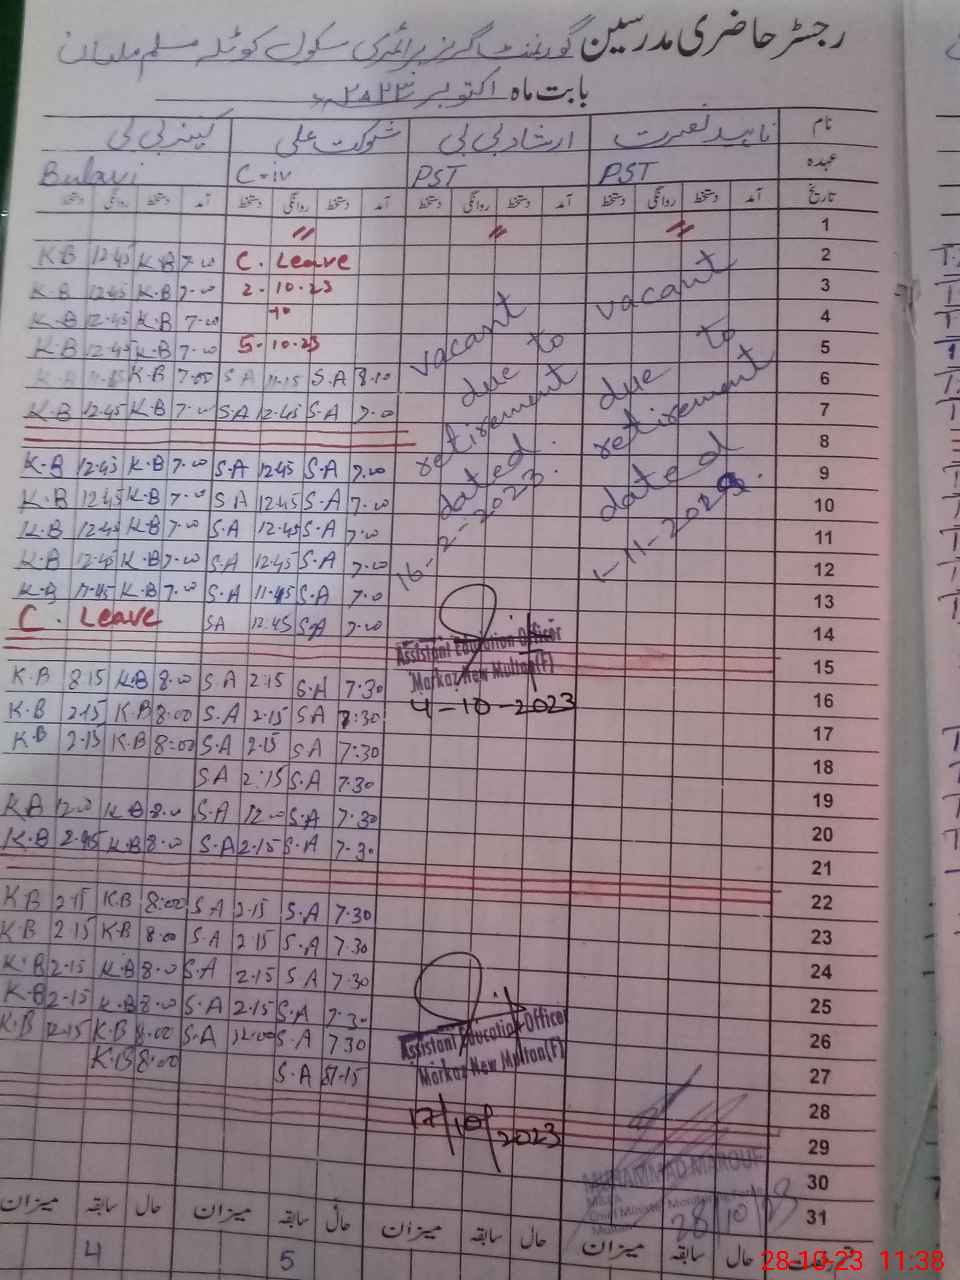 رجسٹر حاضری مدرسین گورنمنٹ گرلز پرائمری سکول کوٹلہ مسلم ملتان
بابت ماہ اکتوبر ۲۰۲۳ء
نام ناہید نصرت ارشاد بی بی شوکت علی کنیز بی بی
عہدہ PST PST C-iv Bulavi
تاریخ آمد دستخط روانگی دستخط آمد دستخط روانگی دستخط آمد دستخط روانگی دستخط آمد دستخط روانگی دستخط
1
K.B 12.45 K.B 7.00 C. Leave 2
K.B 12.45 K.B 7.00 2-10-23 3
K.B 12.45 K.B 7.00 to 4
K.B 12.45 K.B 7.00 5-10-23 5
K.B 7.00 S.A 11.15 S.A 8.10 6
K.B 12.45 K.B 7.00 S.A 12.45 S.A 7.00 7
8
K.B 12.45 K.B 7.00 S.A 12.45 S.A 7.00 9
K.B 12.45 K.B 7.00 S.A 12.45 S.A 7.00 10
K.B 12.45 K.B 7.00 S.A 12.45 S.A 7.00 11
K.B 12.45 K.B 7.00 S.A 12.45 S.A 7.00 12
K.B 11.45 K.B 7.00 S.A 11.45 S.A 7.0 13
C. Leave SA 12.45 S.A 7.00 14
15
K.B 8.15 K.B 8.00 S.A 2.15 S.A 7.30 16
K.B 2.15 K.B 8:00 S.A 2.15 S.A 7:30 17
K.B 2.15 K.B 8:00 S.A 2.15 S.A 7:30 18
S.A 2:15 S.A 7.30 19
K.B 12.00 K.B 8.00 S.A 12.00 S.A 7.30 20
K.B 2.45 K.B 8.00 S.A 2.15 S.A 7.30 21
22
K.B 2.15 K.B 8:00 S.A 2.15 S.A 7.30 23
K.B 2.15 K.B 8.00 S.A 2.15 S.A 7.30 24
K.B 2.15 K.B 8.00 S.A 2.15 S.A 7.30 25
K.B 2.15 K.B 8.00 S.A 2.15 S.A 7.30 26
K.B 12.15 K.B 8.00 S.A 12.00 S.A 7.30 27
K.B 8.00 S.A 8.15 28
29
30
31
vacant
due to
retirement
dated
16-2-2023.
vacant
due to
retirement
dated
1-11-2022.
Assistant Education Officer
Markaz New Multan(F)
4-10-2023
Assistant Education Officer
Markaz New Multan(F)
17/10/2023
MUHAMMAD MAROUF
MEA
28/10/23
حال سابقہ میزان حال سابقہ میزان حال سابقہ میزان حال سابقہ میزان
5 4
28-10-23 11:38